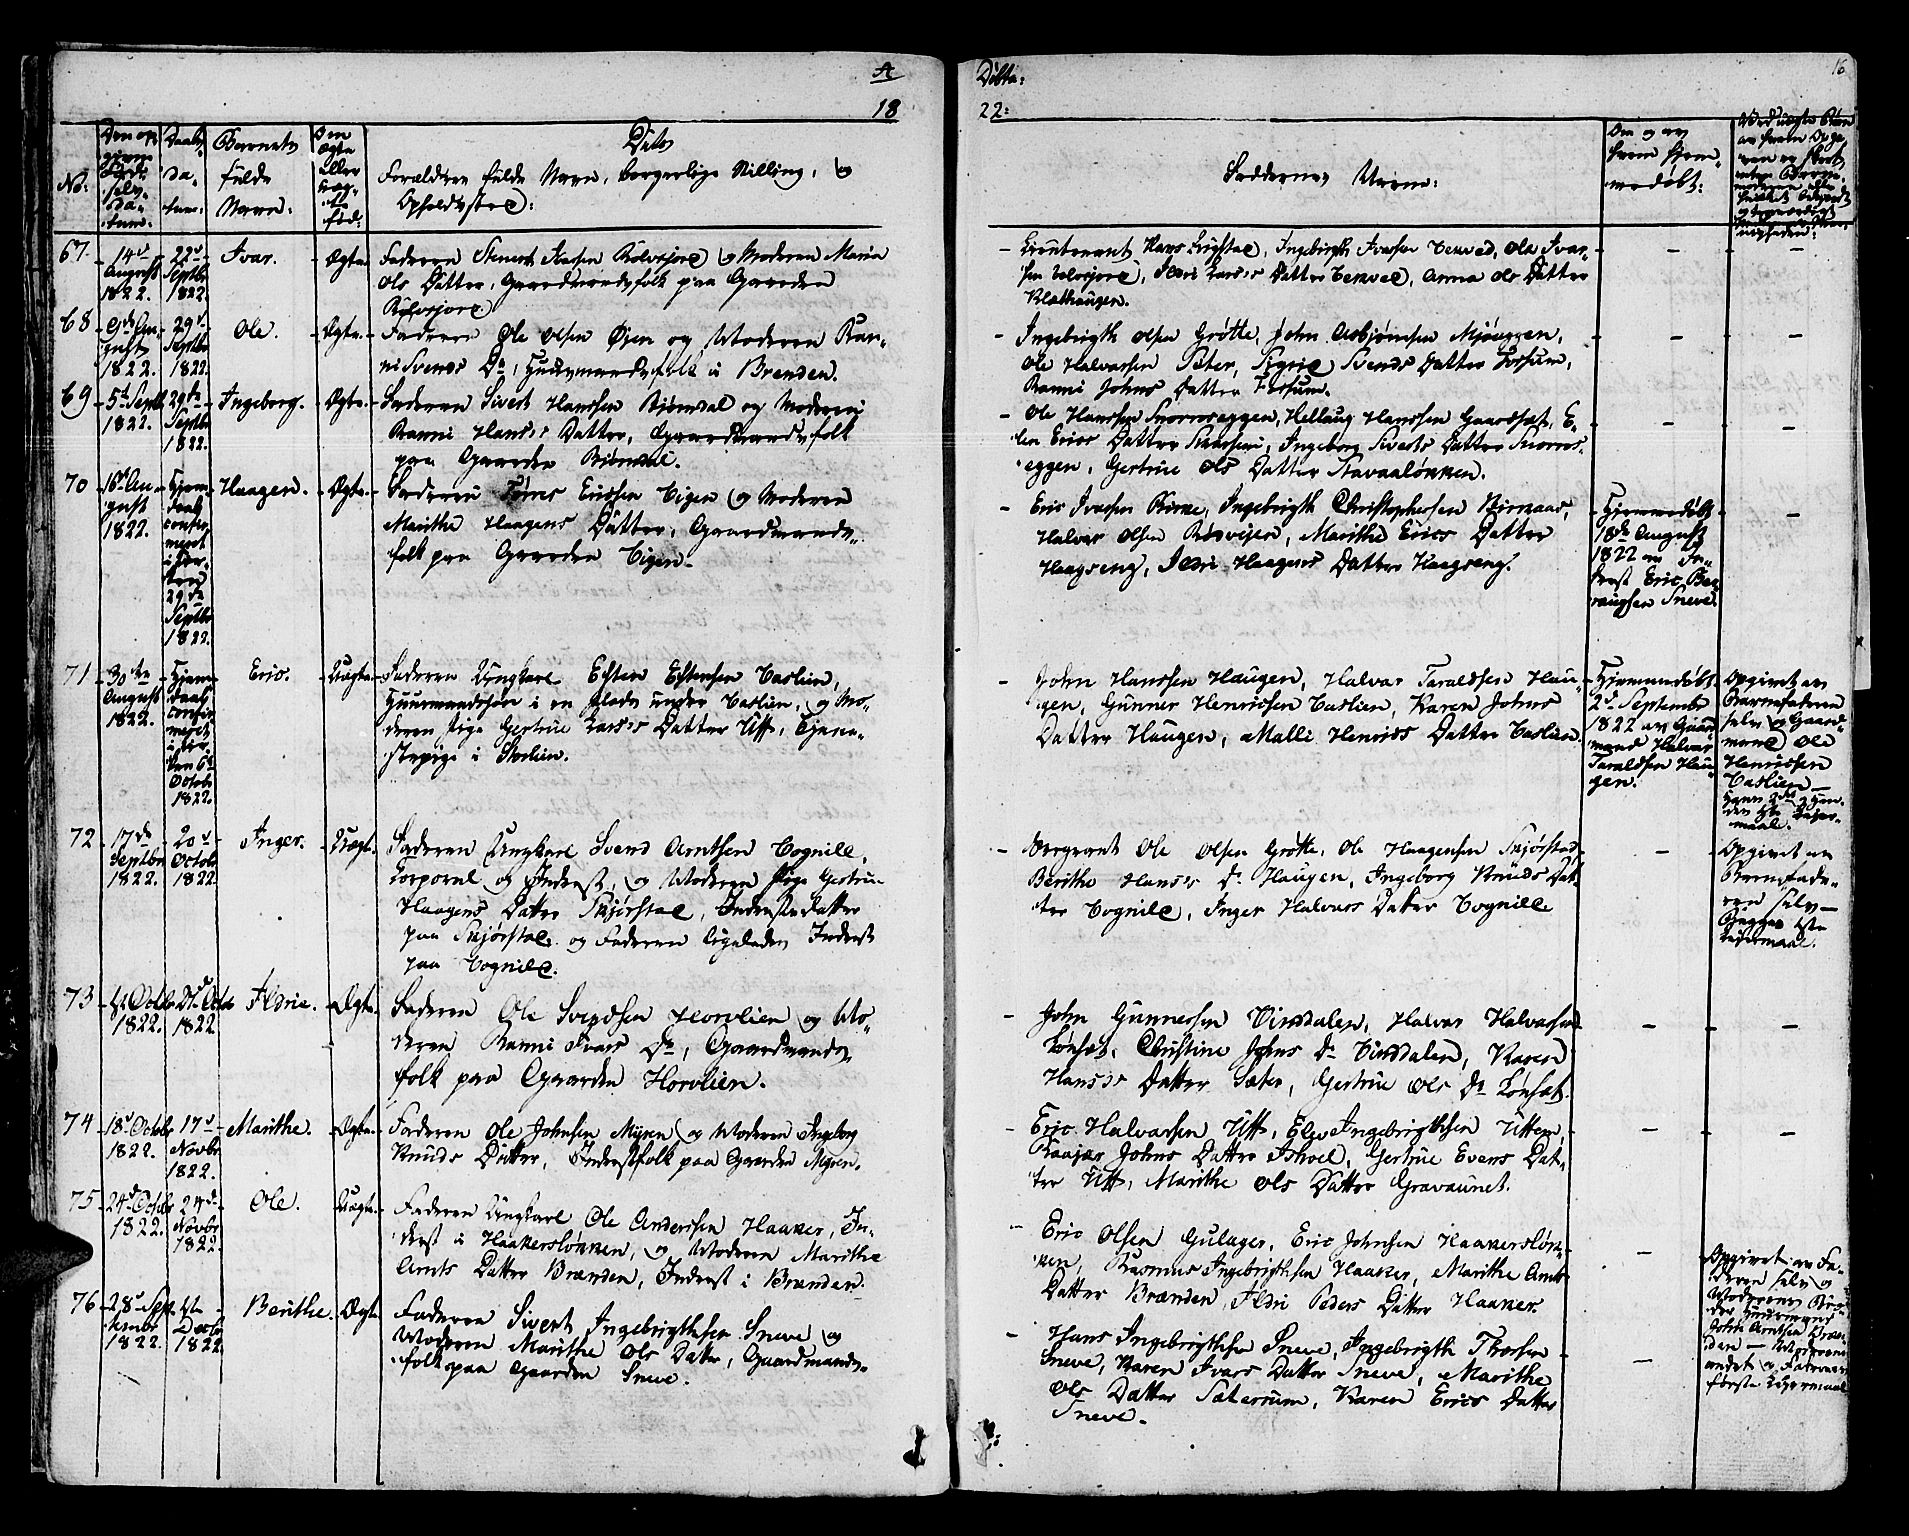 A
18
Døbte:
22:
16
No:
Den op
givne
Føds
selv
Da-
tum:
Daabs
Da-
tum:
Barnets
fulde
Navn:
Om
Ægte
eller
Uæg-
te
fød:
Dets
Forældres fulde Navn, borgerlige Stilling, og
Opholdssted:
Faddernes Navne:
Om og av
hvem hjem-
medøbt:
67.
14d
August
1822.
22d
Septbr
1822.
Ivar.
Ægte
Faderen Rolvsjord og Moderen Maria
Ols Datter, Gaardmandsfolk paa Gaarden
Rolvsjord.
Lieutenant Hans Ingebrigth Ivarsen Ole Ivar-
sen Ildri Larses Datter Anna Ols Datter
Klethaugen.
68
August
1822.
29d
Septbr
1822.
Ole.
Ægte.
Faderen Ole Olsen Øien og Moderen Ran-
ni Svends Dr, Huusmandsfolk i Brenden.
Ingebrigth Olsen Grøtte, John Asbjørnsen Mjøuggen,
Ole Halvarsen Sæter, Sigrid Svends Datter Forsum,
Ranni Johns Datter Forsum.
69
5te Septbr
1822.
29de
Septbr
1822.
Ingeborg.
Ægte.
Faderen Sivert Hanssen Biørndal og Moderen
Ranni Hanses Datter, Gaardmandsfolk
paa Gaarden Biørndal.
Ole Hanssen Snoroseggen, Hellaug Hanssen Gaardsæt, E-
len Erics Datter Ingeborg Siverts Datter Snoros-
eggen, Gertrue Ols Datter Stavaaløkken.
70
16de Au-
gust
1822.
Hjem-
daab
confir-
meret
i Kir-
ken
29de
Septbr
1822.
Haagen.
Ægte.
Faderen Tørres Ericsen Vigen og Moderen
Marithe Haagens Datter, Gaardmands-
folk paa Gaarden Vigen
Eric Ivarsen Ingebrigth Christophersen
Halvar Olsen Marithe Erics Datter
Haagseng, Ildri Haagens Datter Haagseng.
Hjemmedøbt
18de August
1822 av In-
derst Eric Ber-
raugsen Sneve.
71
30te
August
1822.
Hjem-
daab
confir-
meret
i Kir-
ken 6te
Octobr
1822.
Eric.
Uægte
Faderen Ungkarl Esten Estensen Caslien,
Huusmandssøn i en Plads under Caslien, og Mo-
deren Pige Gertrue Larses Datter Uff, Tjene-
stepige i Storlien.
John Hanssen Haugen, Halvar Taraldsen Hau-
gen, Gunner Henricsen Caslien, Karen Johns
Datter Haugen, Malli Henrics Datter Caslien.
Hjemmedøbt
2d Septembr
1822 av Gaar-
mand Halvar
Taraldsen Hau-
gen.
Opgivet av
Barnefaderen
selv og Gaard-
mand Ole
Henricsen
Caslien
72
17de
Septbr
1822.
20d
Octobr
1822.
Inger.
Uægt.
Faderen Ungkarl Svend Arntsen Vognild,
Corporal og Inderst, og Moderen Pige Gertrue
Haagens Datter Skjørstad, Inderstedatter
paa Skjørstad og Faderen ligeledes Inderst
paa Vognild.
Sergeant Ole Olsen Grøtte, Ole Haagensen Skjørstad
Berithe Hanses Dr Haugen, Ingeborg Knuds Dat-
ter Vognild, Inger Halvars Datter Vognild
Opgivet av
Barnefade-
ren selv
Begges 1ste
Leiermaal.
73
Octobr
1822.
Octobr
1822.
Ildrie.
Ægte.
Faderen Ole Svendsen Horvlien og Mo-
deren Ranni Ivars Dr, Gaardmands-
folk paa Gaarden Horvlien.
John Gunnersen Vindalen, Halvar Halvarsen
Lønsæt, Christine Johns Dr Vindalen, Karen
Hanses Datter Sæter, Gertrue Ols Dr Lønsæt.
74
18d Octobr
1822.
17d
Novbr
1822.
Marithe.
Ægte.
Faderen Ole Johnsen Myren og Moderen Ingeborg
Knuds Datter, Inderstfolk paa Gaarden Myren.
Eric Halvarsen Uff, Elev Ingebrigthsen Uttem,
Johns Datter Ishoel, Gertrue Evens Dat-
ter Uff, Marithe Ols Datter Gravaunet.
75
24d Octobr
1822.
24d
Novbr
1822.
Ole.
Uægte.
Faderen Ungkarl Ole Anderssen Haaker, In-
derst i Haakersløkken, og Moderen Marithe
Arnts Datter Brænden, Inderst i Brænden.
Eric Olsen Gulager, Eric Johnsen Haakersløk-
ken, Rasmus Ingebrigthsen Haaker, Marithe Arnts
Datter Brænden, Ildri Peders Datter Haaker.
Opgivet av Fa-
deren selv og
Moderens Bro-
der Huusmand
John Arntsen Bræn-
den — Moderens
andet og Faderens
første Leiermaal
76
28d Sep-
tember
1822.
1ste
Decbr
1822.
Berithe.
Ægte
Faderen Sivert Ingebrigthsen Sneve og
Moderen Marithe Ols Datter, Gaardmands-
folk paa Gaarden Sneve.
Hans Ingebrigthsen Sneve, Ingebrigth Thorsen
Sneve, Karen Ivars Datter Sneve, Marithe
Ols Datter Sæterrum, Karen Erics Datter
Sneve.